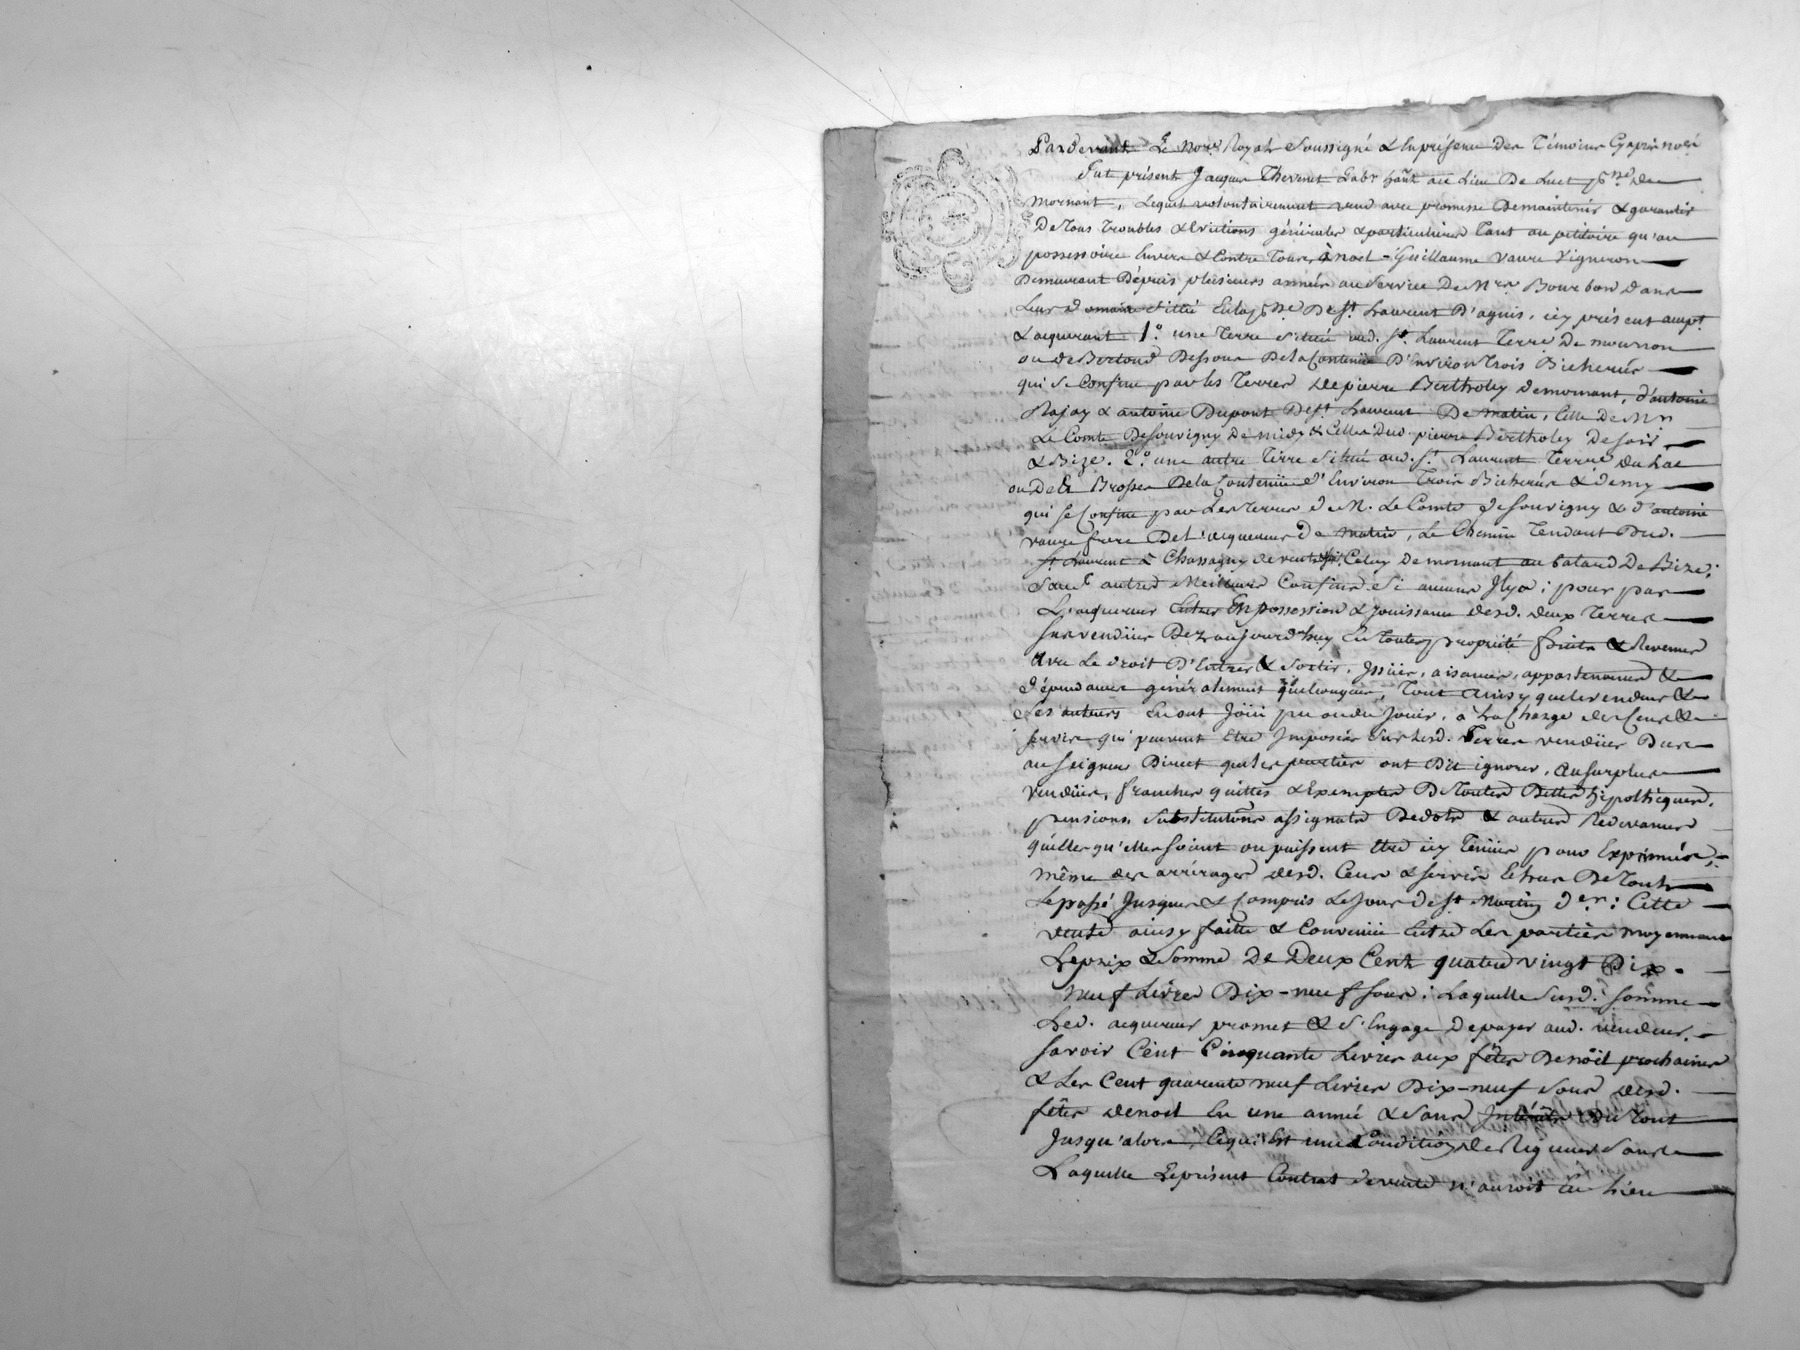 Pardevant Le Nore Royal Soussigné & En présence des Témoins Cy après només
Fut présent Jacques Thevenet Labr habt au Lieu De Luet psse de
Mornant, Lequel volontairement vend avec promesse De maintenir & garantir
De Tous Troubles & Evictions générales & particulieres Tant au petitoire qu'au
possessoire Envers & Contre Tous, à noel-Guillaume Vaure Vigneron
Demeurant Depuis plusieurs années au Service De Mrs Bourbon dans
Leur domaine Situé En la psse De St Laurent D'agnis, icy présent accept
& acquerant 1o. une Terre Située aud. St Laurent Terre De mournon
ou de Bertoud Dessous De la Contenüe D'Environ Trois Bicherées
qui Se Confine par les Terres De pierre Bertholey de mornant, d'antoine
Rajay & antoine Dupont De St Laurent De matin, Celle De Mr
Le Comte De Souvigny De midy & Celles Dud. pierre Bertholey De soir
& Bize. 2o. une autre Terre Située aud. St Laurent Terre du Lac
ou De la Brosse De la Contenüe d'Environ Trois Bicherées & demy
qui se Confine par Les Terres de M. Le Comte de Souvigny & d'antoine
vaure frere De L'acquereur De matin, Le Chemin Tendant Dud.
St Laurent à Chassagny de vent, Celuy de mornant au Bataud De Bize;
Sauf autres Meilleurs Confins Si aucuns Il y a; pour par
L'acquereur Entrer En possession & jouissance desd. deux Terres
Sus vendües Dez aujourd'huy En Toute propriété fruits & Revenus
avec Le droit D'Entrer & Sortir, Issües, aisances, appartenances &
dépendances généralement quelconques, Tout ainsy que le vendeur &
Ses auteurs En ont Joüi pu ou du Jouir, à La Charge des Cens &
servis qui peuvent Etre Imposés Sur Lesd. Terres vendües Dus
au Seigneur Direct que les parties ont Dit ignorer, au surplus
vendües, franches quittes & Exemptes De Toutes Dettes hipothéques,
pensions, Substitutions assignats De dots & autres Redevances
qu'elles qu'elles soient ou puissent Etre icy Tenües pour Exprimées,
même des arrérages desd. Cens & Servis Echus De Tout
Le passé Jusques & Compris Le jour De St Martin der: Cette
vente ainsy faitte & Convenüe Entre Les parties moyennant
Le prix & Somme De Deux Cent quatre vingt Dix-
neuf Livres Dix-neuf Sous; Laquelle Susd. Somme
Led. acquereur promet & S'Engage De payer aud. vendeur,
Savoir Cent Cinquante Livres aux fêtes De nöel prochaines
& Les Cent quarente neuf Livres Dix-neuf Sous desd.
fêtes de noel En une année & Sans Intérêts Du Tout
Jusqu'alors, Ce qui Est une Condition De Rigueur Sans
Laquelle Le présent Contrat de vente n'auroit Eu Lieu